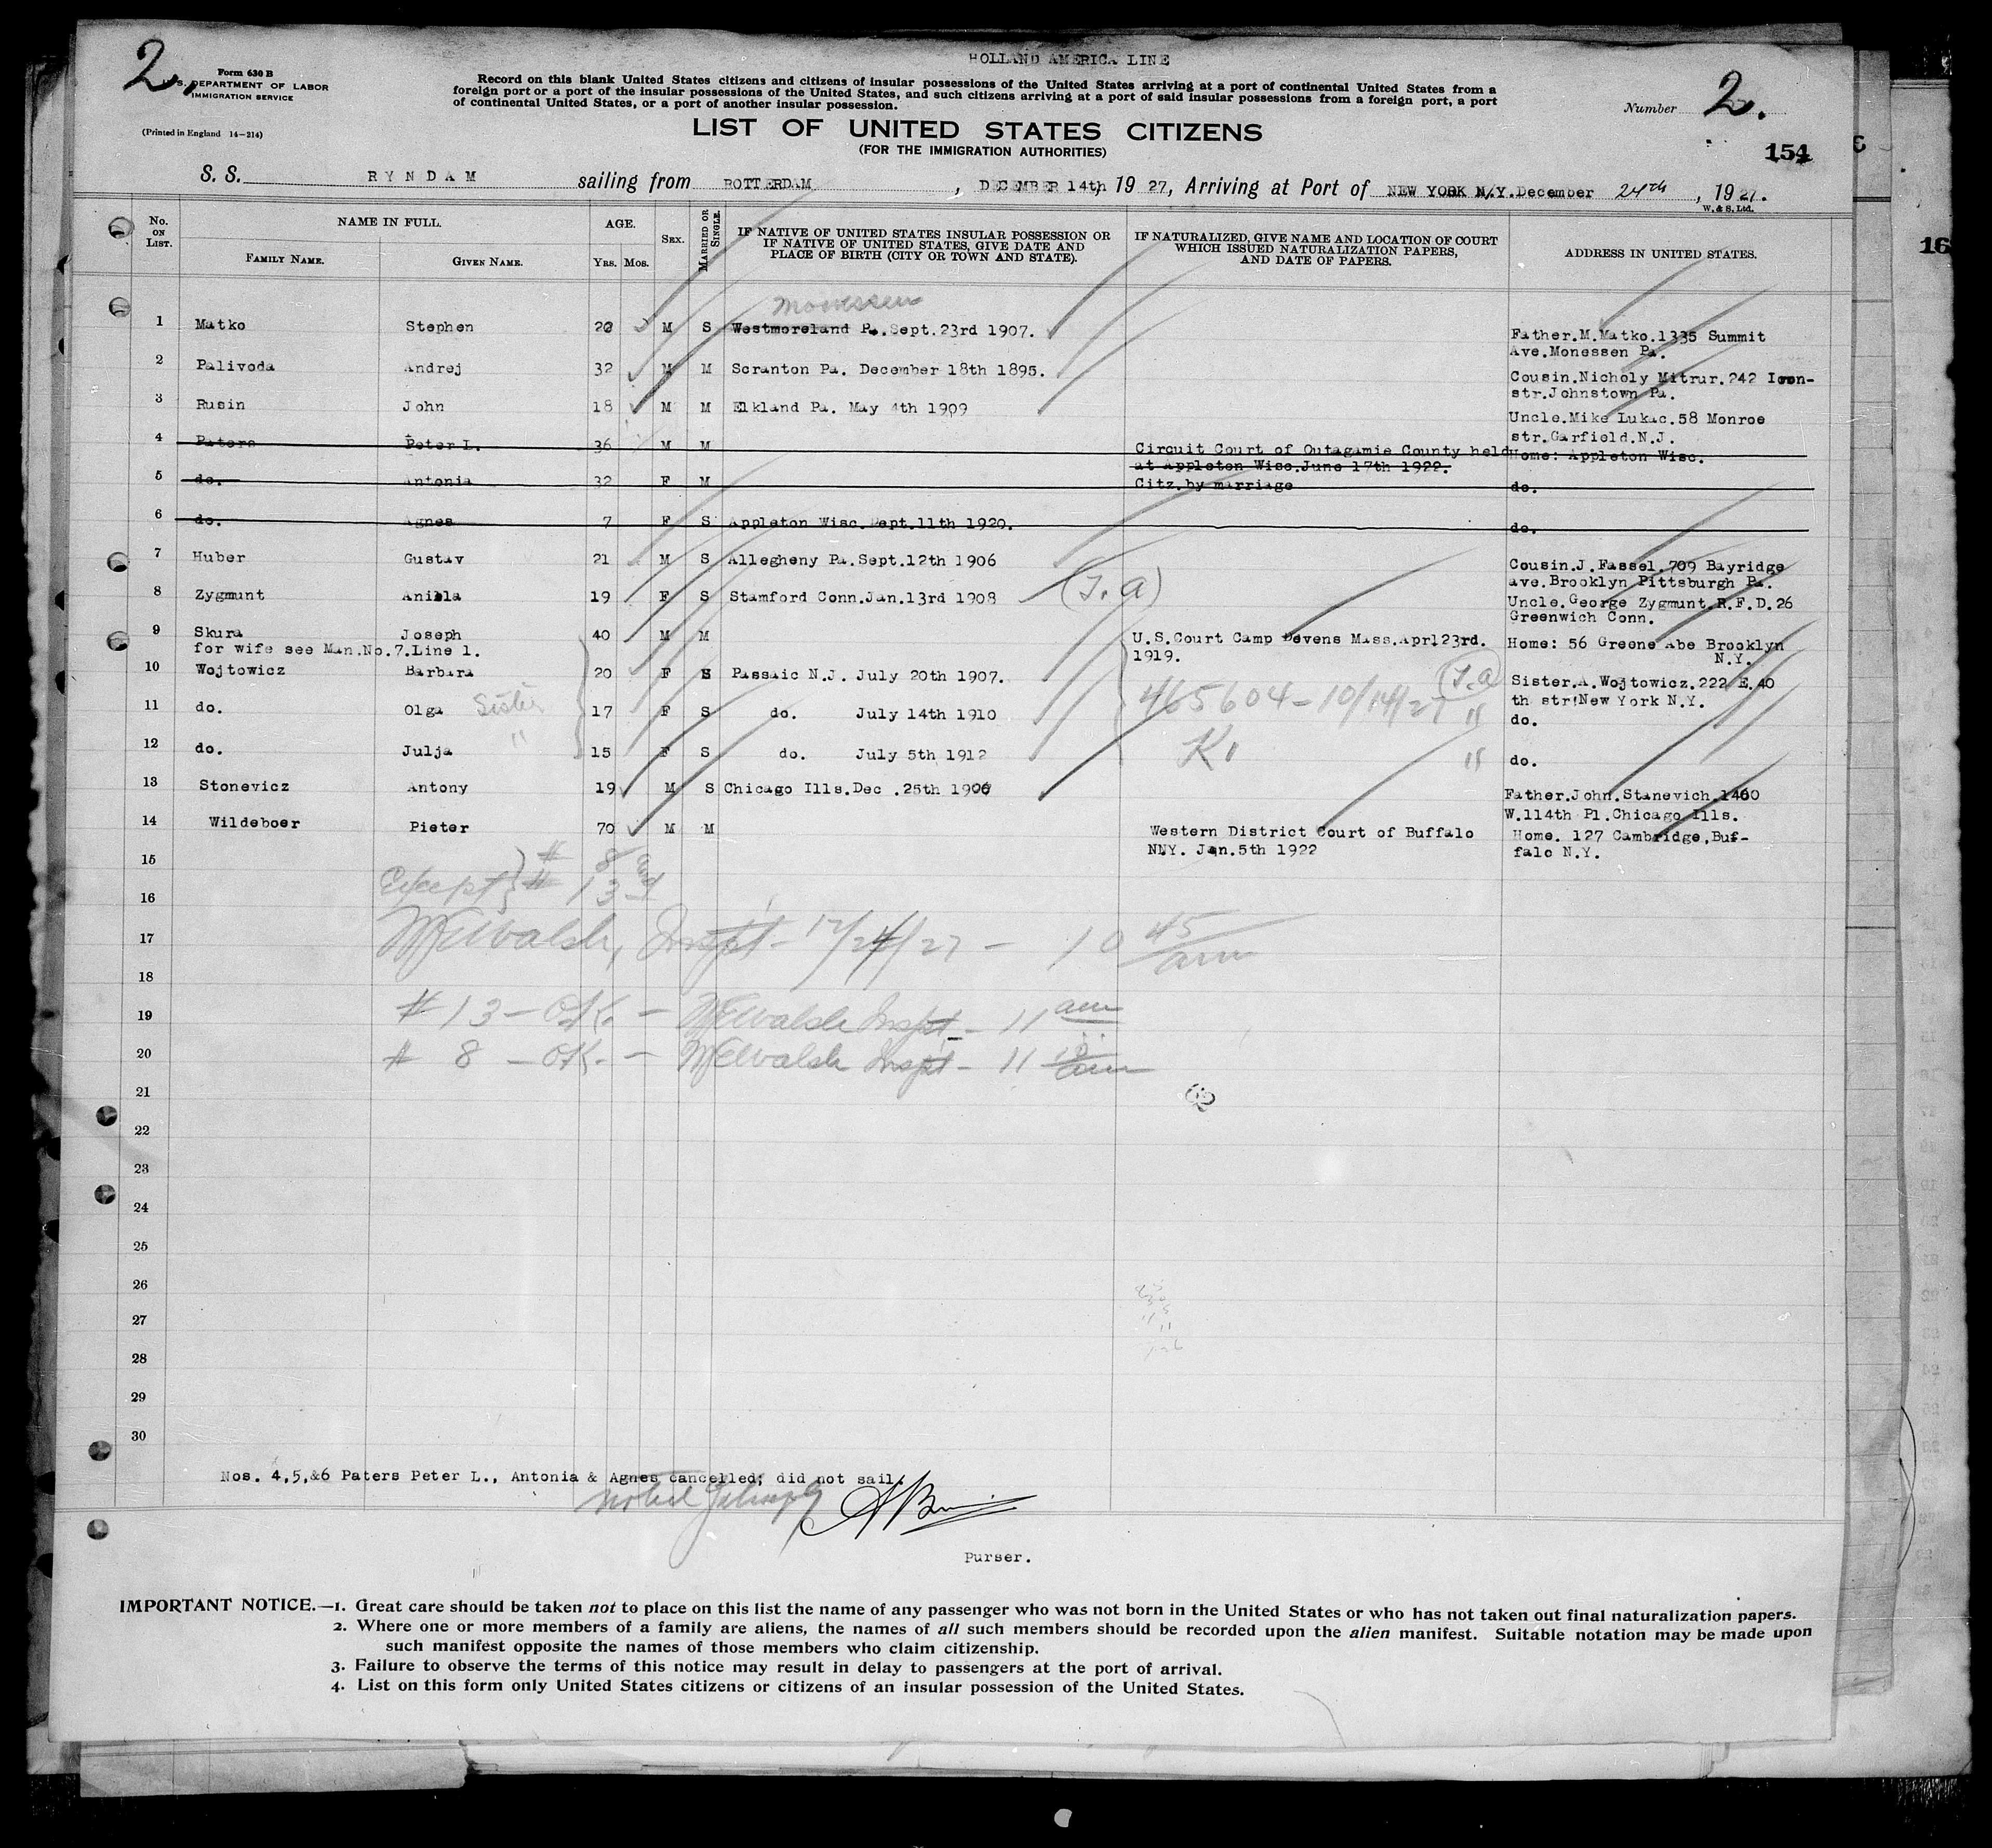 HOLLAND AMERICA LINE
2.
Form 630 B
U.S. DEPARTMENT OF LABOR
IMMIGRATION SERVICE
(Printed in England 14-214)
Record on this blank United States citizens and citizens of insular possessions of the United States arriving at a port of continental United States from a
foreign port or a port of the insular possessions of the United States, and such citizens arriving at a port of said insular possessions from a foreign port, a port
of continental United States, or a port of another insular possession.
Number 2.
LIST OF UNITED STATES CITIZENS
(FOR THE IMMIGRATION AUTHORITIES)
154
S. S. RYNDAM sailing from ROTTERDAM, DECEMBER 14th 1927, Arriving at Port of NEW YORK N.Y. December 24th, 1927.
W. & S. Ltd.
No. on List. NAME IN FULL. AGE. Sex. Married or Single. IF NATIVE OF UNITED STATES INSULAR POSSESSION OR IF NATIVE OF UNITED STATES, GIVE DATE AND PLACE OF BIRTH (CITY OR TOWN AND STATE). IF NATURALIZED, GIVE NAME AND LOCATION OF COURT WHICH ISSUED NATURALIZATION PAPERS, AND DATE OF PAPERS. ADDRESS IN UNITED STATES.
Family Name. Given Name. Yrs. Mos.
Monessen
1 Matko Stephen 20 M S Westmoreland Pa. Sept. 23rd 1907. Father. M. Matko. 1335 Summit
Ave. Monessen Pa.
2 Palivoda Andrej 32 M M Scranton Pa. December 18th 1895. Cousin. Nicholy Mitrur. 242 Iron-
str. Johnstown Pa.
3 Rusin John 18 M M Elkland Pa. May 4th 1909 Uncle. Mike Lukac. 58 Monroe
str. Garfield. N.J.
4 Paters Peter L. 36 M M Circuit Court of Outagamie County held Home: Appleton Wisc.
at Appleton Wisc. June 17th 1922.
5 do. Antonia 32 F M Citz. by marriage do.
6 do. Agnes 7 F S Appleton Wisc. Sept. 11th 1920. do.
7 Huber Gustav 21 M S Allegheny Pa. Sept. 12th 1906 Cousin. J. Fassel. 709 Bayridge
ave. Brooklyn Pittsburgh Pa.
8 Zygmunt Aniela 19 F S Stamford Conn. Jan. 13rd 1908 (T.A) Uncle. George Zygmunt. R.F.D. 26
Greenwich Conn.
9 Skura Joseph 40 M M U.S. Court Camp Devens Mass. Aprl 23rd. Home: 56 Greene Abe Brooklyn
for wife see Man. No. 7. Line 1. 1919. N.Y.
10 Wojtowicz Barbara 20 F S Passaic N.J. July 20th 1907. (T.A) Sister. A. Wojtowicz. 222 E. 40
th str! New York N.Y.
11 do. Olga Sister 17 F S do. July 14th 1910 465604-10/14/27 " do.
12 do. Julja " 15 F S do. July 5th 1912 " do.
13 Stonevicz Antony 19 M S Chicago Ills. Dec. 25th 1906 Father. John. Stanevich. 1400
W. 114th Pl. Chicago Ills.
14 Wildeboer Pieter 70 M M Western District Court of Buffalo Home. 127 Cambridge, Buf-
NNY. Jan. 5th 1922 falo N.Y.
15 # 8 and
Except } # 13
16
17 WEWalsh, Inspt - 12/24/27 - 10 45 am
18
19 # 13 - OK. - WEWalsh Inspt - 11 am
20 # 8 - OK. - WEWalsh Inspt - 11 10 am
21
22
23
24
25
26
27
28
29
30
Nos. 4,5,&6 Paters Peter L., Antonia & Agnes cancelled; did not sail.
Purser.
IMPORTANT NOTICE.—1. Great care should be taken not to place on this list the name of any passenger who was not born in the United States or who has not taken out final naturalization papers.
2. Where one or more members of a family are aliens, the names of all such members should be recorded upon the alien manifest. Suitable notation may be made upon
such manifest opposite the names of those members who claim citizenship.
3. Failure to observe the terms of this notice may result in delay to passengers at the port of arrival.
4. List on this form only United States citizens or citizens of an insular possession of the United States.